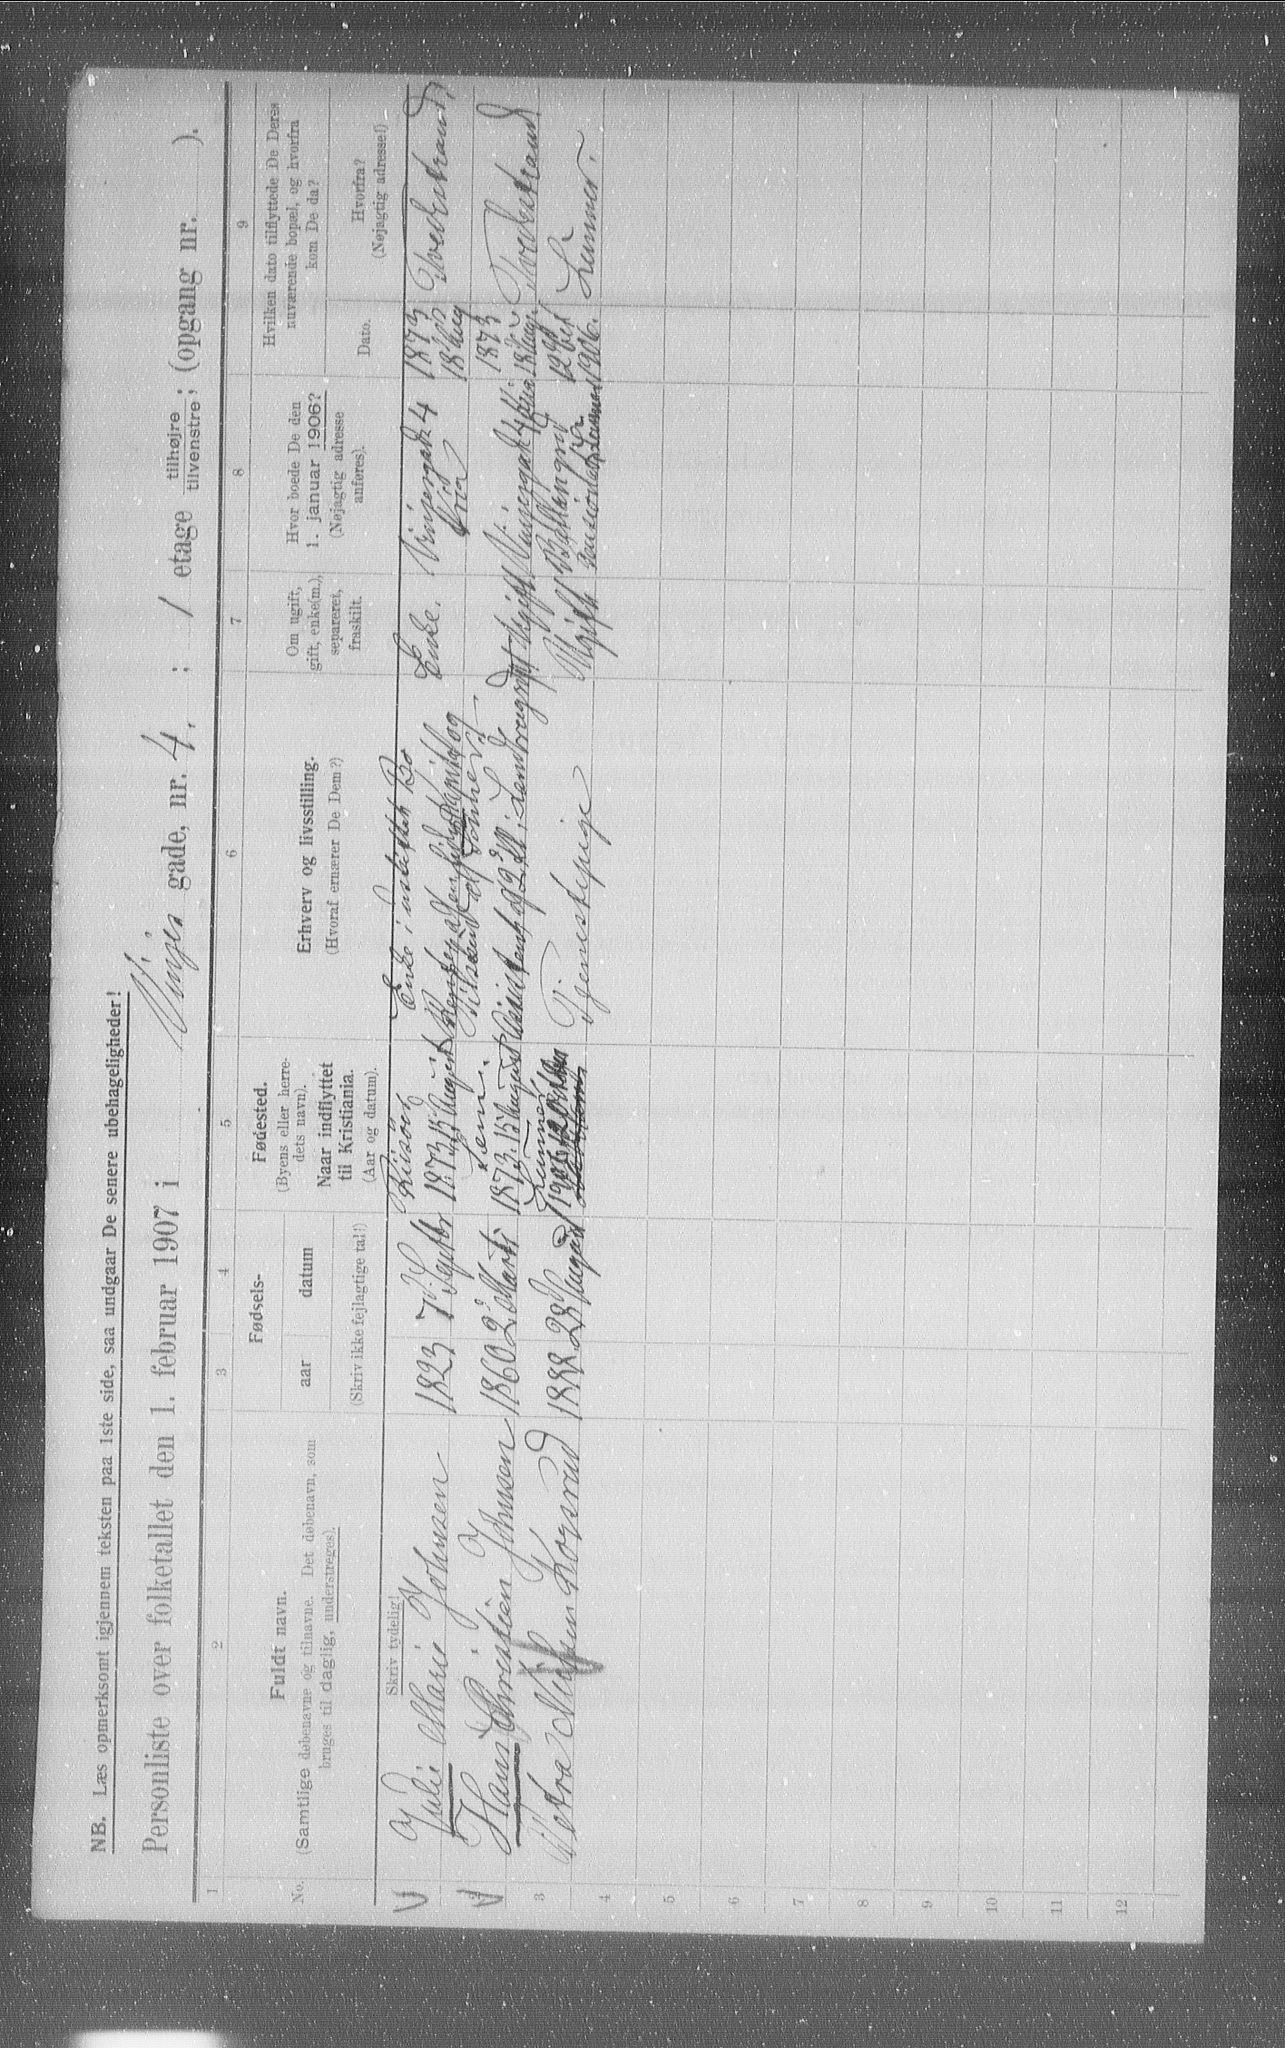 NB. Læs opmerksomt igjennem teksten paa 1ste side, saa undgaar De senere ubehageligheder!
Personliste over folketallet den 1. februar 1907 i Vinjes gade, nr. 4. ; 1 etage tilhøjre tilvenstre; (opgang nr. ).
1 2 3 4 5 6 7 8 9
No.
Fuldt navn.
(Samtlige døbenavne og tilnavne. Det døbenavn, som
bruges til daglig, understreges).
Skriv tydelig!
Fødsels-
aar datum
(Skriv ikke fejlagtige tal!)
Fødested.
(Byens eller herre-
dets navn).
Naar indflyttet
til Kristiania.
(Aar og datum).
Erhverv og livsstilling.
(Hvoraf ernærer De Dem?)
Om ugift,
gift, enke(m.),
separeret,
fraskilt.
Hvor boede De den
1. januar 1906?
(Nøjagtig adresse
anføres).
Hvilken dato tilflyttede De Deres
nuværende bopæl, og hvorfra
kom De da?
Dato.
Hvorfra?
(Nøjagtig adresse!)
Julie Marie Johnsen 1823 7 Septbr Risør 1873 15 August Enke i uskiftet Bo Enke. Vinjesgade 4 Kria 1873 18 Aug Tvedestrand
Hans Christian Johnsen 1860 2 Marts 1873 15 August Assistent Ugift Vinjesgade 4 Kria 1873 18 Aug Tvedestrand
3 Petra 1888 28 August Lunner 1906 Tjenestepige Ugift 1906. Lunner.
4
5
6
7
8
9
10
11
12